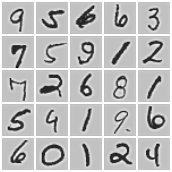 9 5 6 6 3
7 5 9 1 2
7 2 6 8 1
5 9 1 9 6
6 0 1 2 4